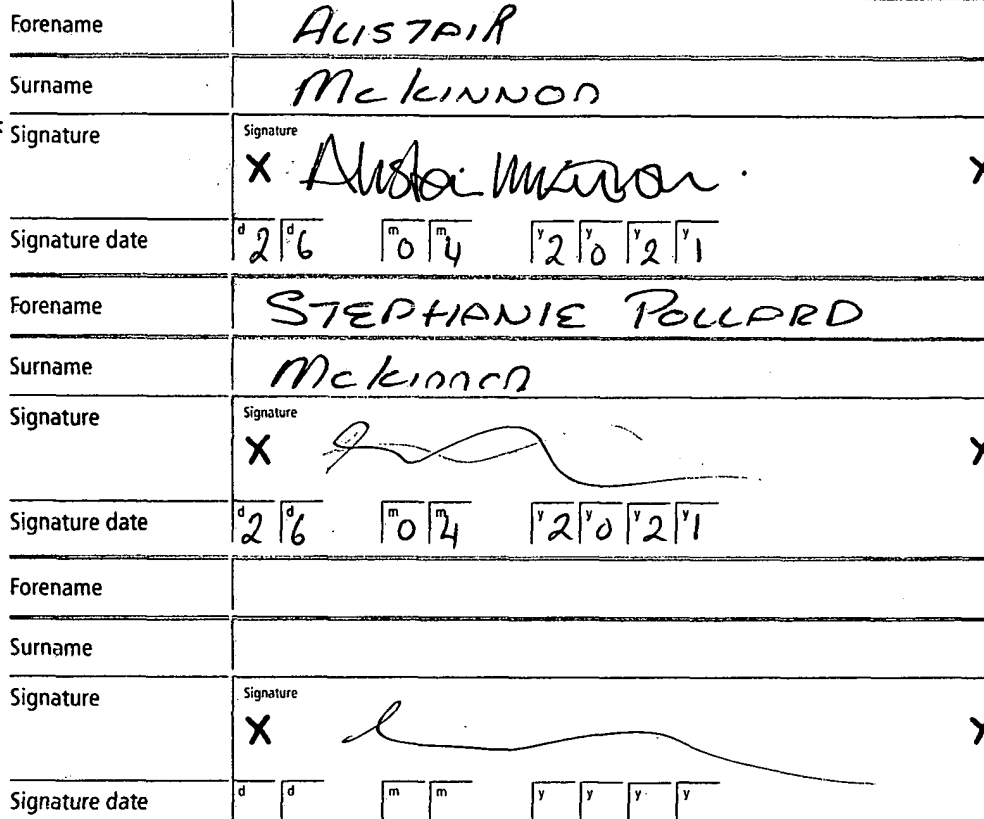 Forename ALISTAIR
Surname McKINNON
Signature Signature X Alistair McKinnon
Signature date d2 d6 m0 m4 y2 y0 y2 y1
Forename STEPHANIE POLLARD
Surname McKinnon
Signature Signature X
Signature date d2 d6 m0 m4 y2 y0 y2 y1
Forename
Surname
Signature Signature X
Signature date d d m m y y y y